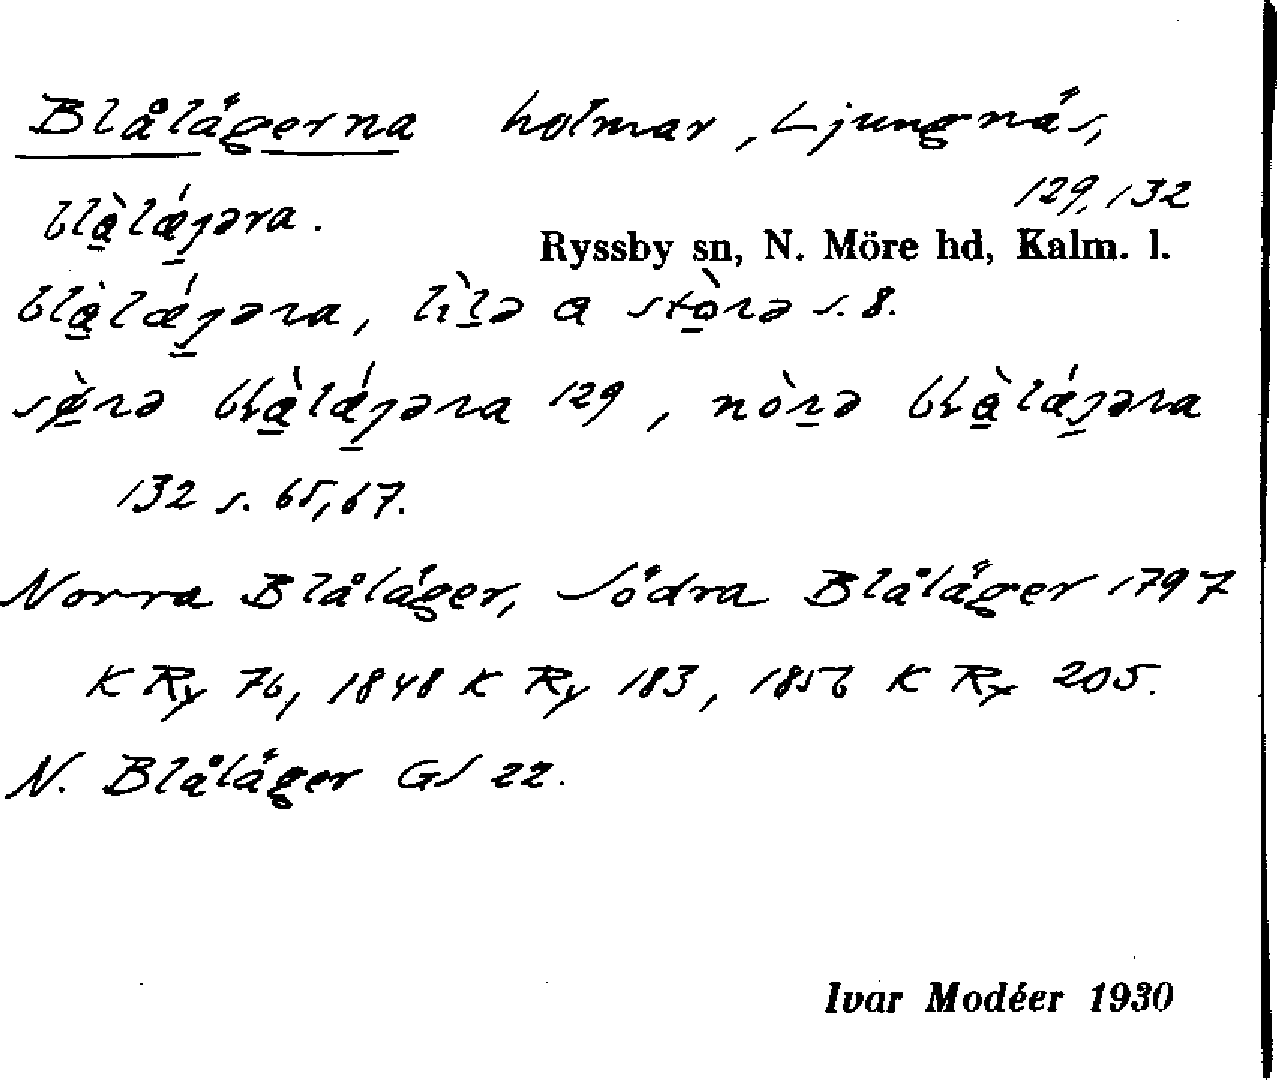 Blålägerna holmar, Ljungnäs,
129, 132
blàlǽjəra.
Ryssby sn, N. Möre hd, Kalm. l.
blàlǽjəra, lìlə a stòrə s. 8.
sø̀rə blàlǽjəra 129, nòrə blàlǽjəra
132 s. 65, 67.
Norra Blåläger, Södra Blåläger 1797
K Ry 76, 1848 K Ry 183, 1856 K Ry 205.
N. Blåläger GS 22.
Ivar Modéer 1930